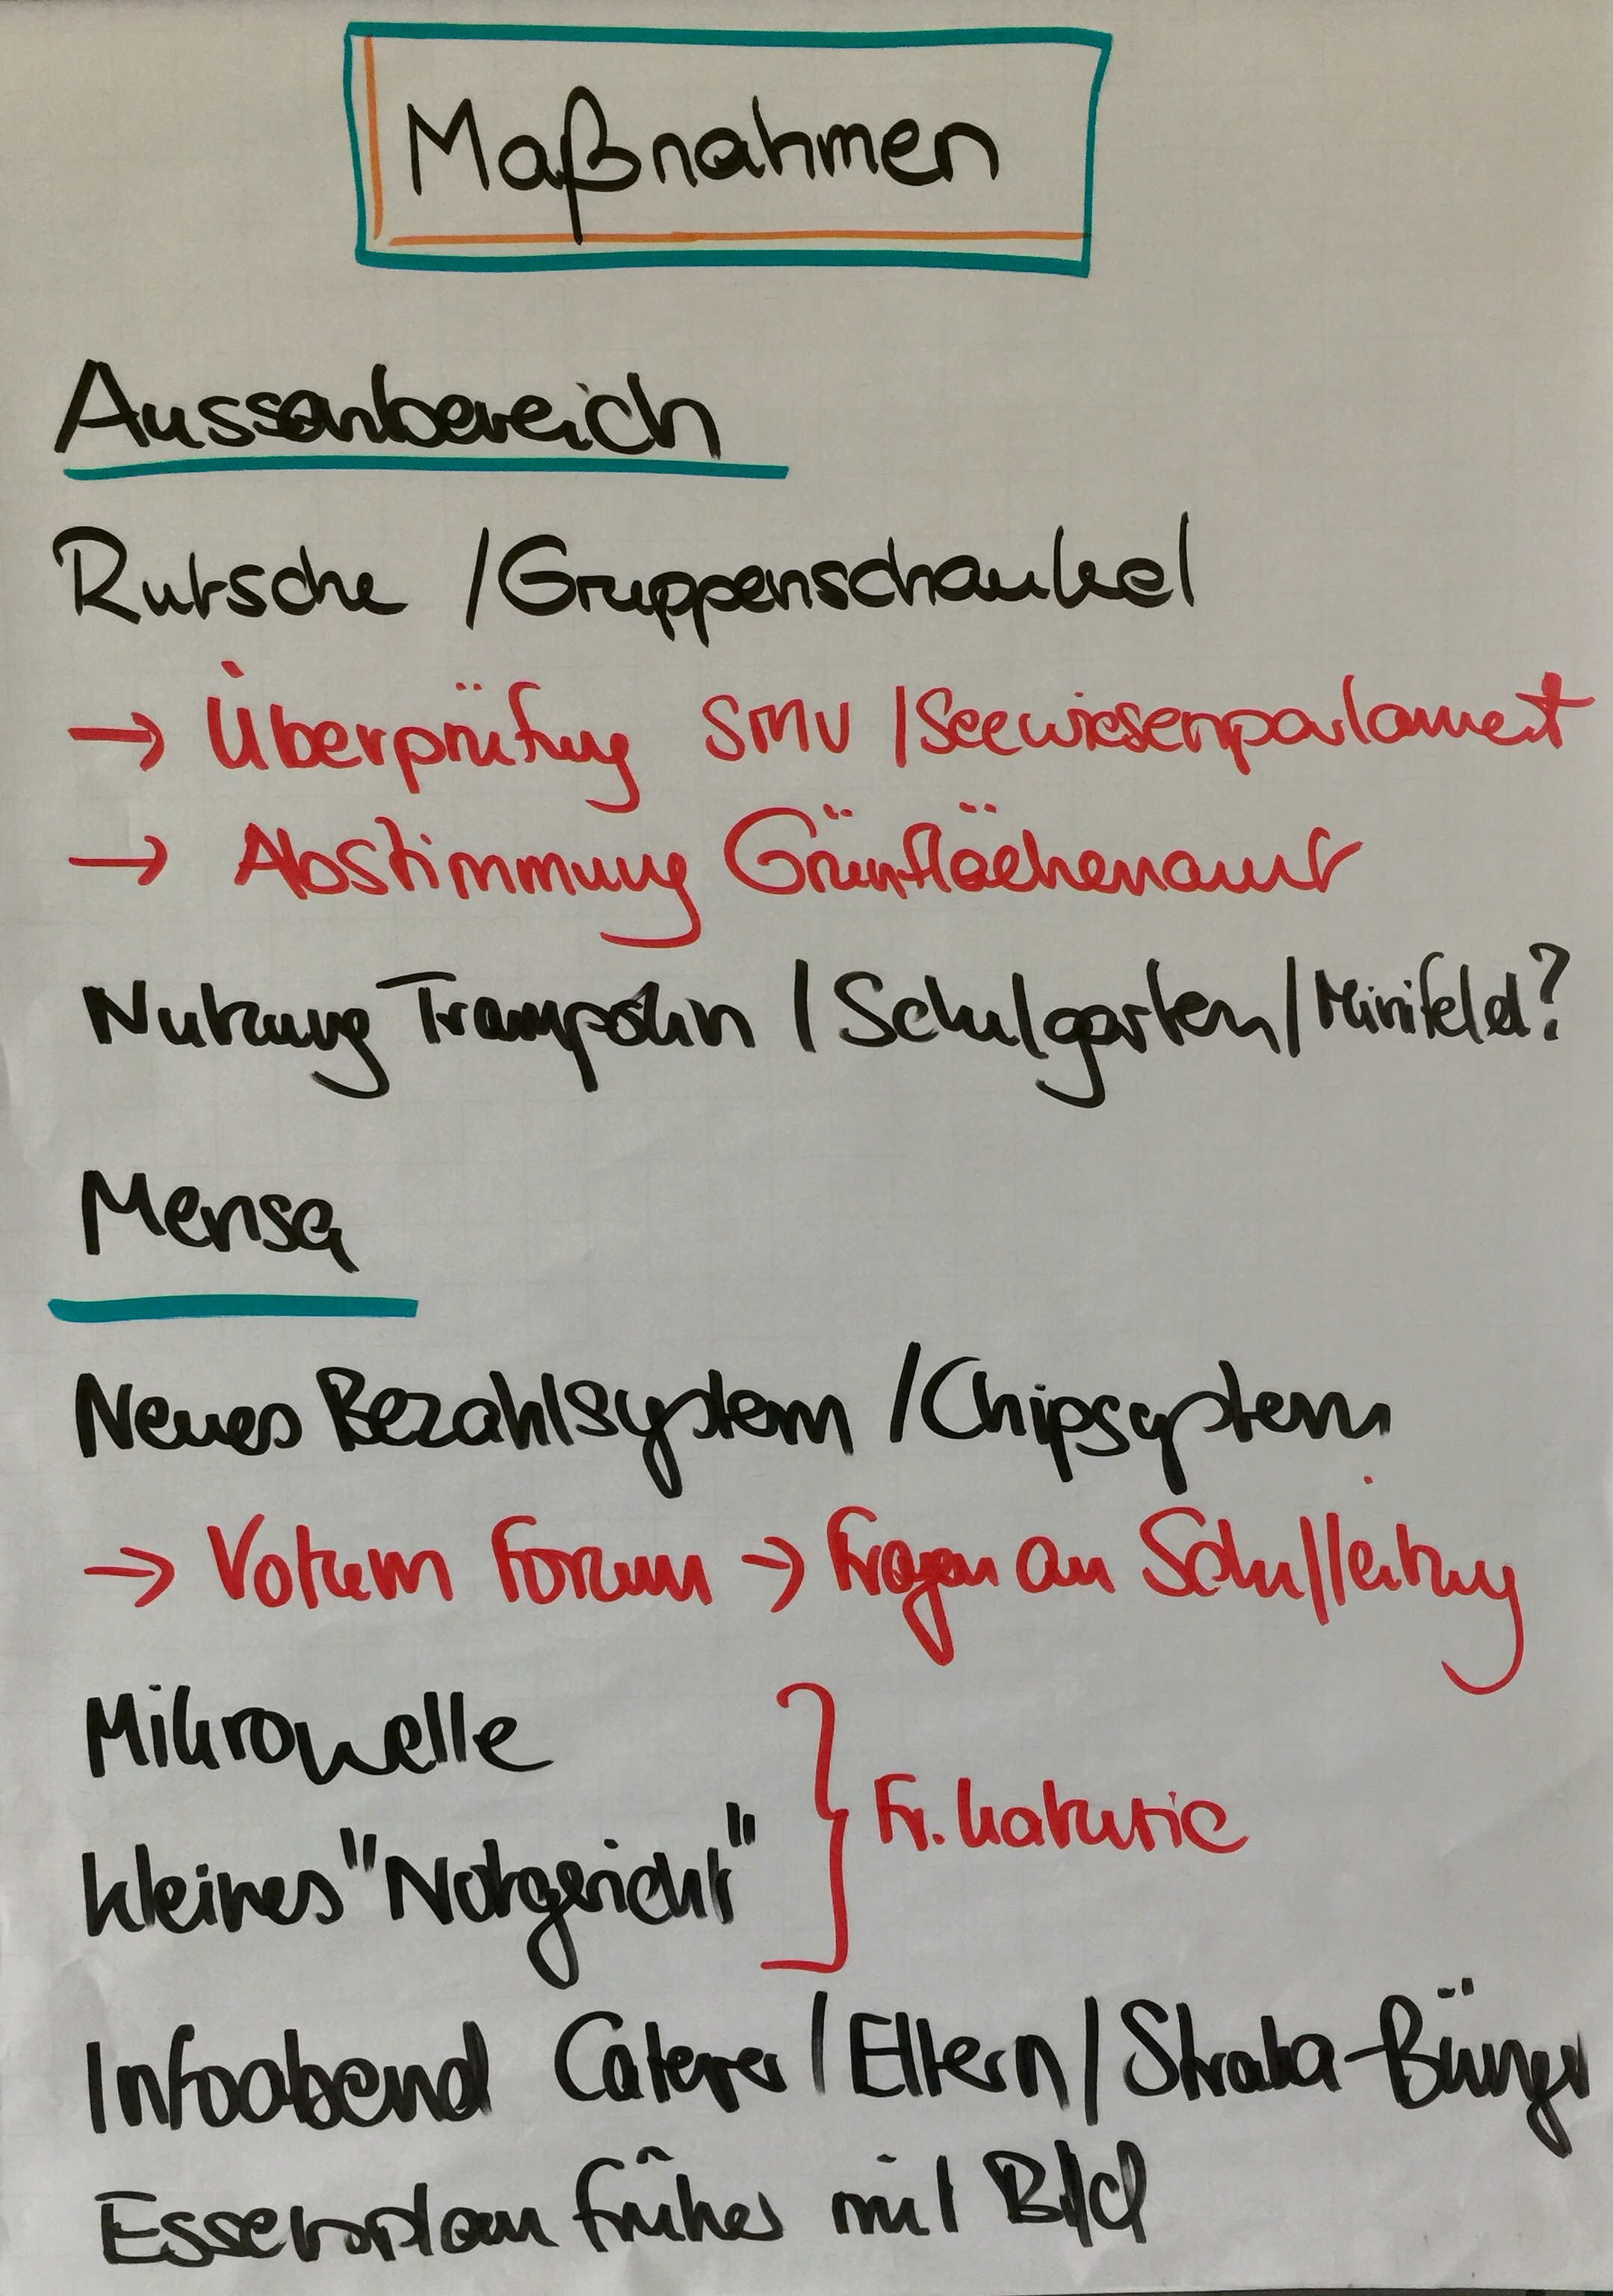 Maßnahmen
Aussenbereich
Rutsche / Gruppenschaukel
→ Überprüfung SMV / Seewiesenparlament
→ Abstimmung Grünflächenamt
Nutzung Trampolin / Schulgarten / Minifeld?
Mensa
Neues Bezahlsystem / Chipsystem
→ Votum Forum → Fragen an Schulleitung
Mikrowelle
kleines "Notgericht"
Fr.
Infoabend Caterer / Eltern / Straka-Bürger
Essensplan früher mit Bild